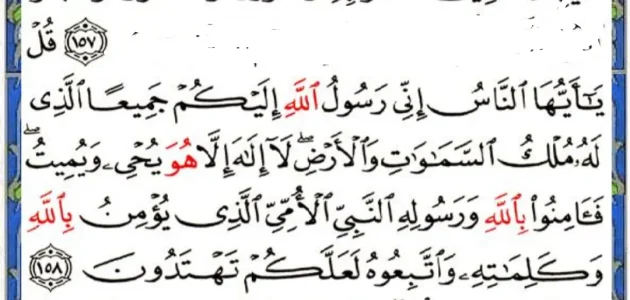 ۝١٥٧ قُلْ
يَـٰٓأَيُّهَا ٱلنَّاسُ إِنِّى رَسُولُ ٱللَّهِ إِلَيْكُمْ جَمِيعًا ٱلَّذِى
لَهُۥ مُلْكُ ٱلسَّمَـٰوَٰتِ وَٱلْأَرْضِ ۖ لَآ إِلَـٰهَ إِلَّا هُوَ يُحْىِۦ وَيُمِيتُ ۖ
فَـَٔامِنُوا۟ بِٱللَّهِ وَرَسُولِهِ ٱلنَّبِىِّ ٱلْأُمِّىِّ ٱلَّذِى يُؤْمِنُ بِٱللَّهِ
وَكَلِمَـٰتِهِۦ وَٱتَّبِعُوهُ لَعَلَّكُمْ تَهْتَدُونَ ۝١٥٨